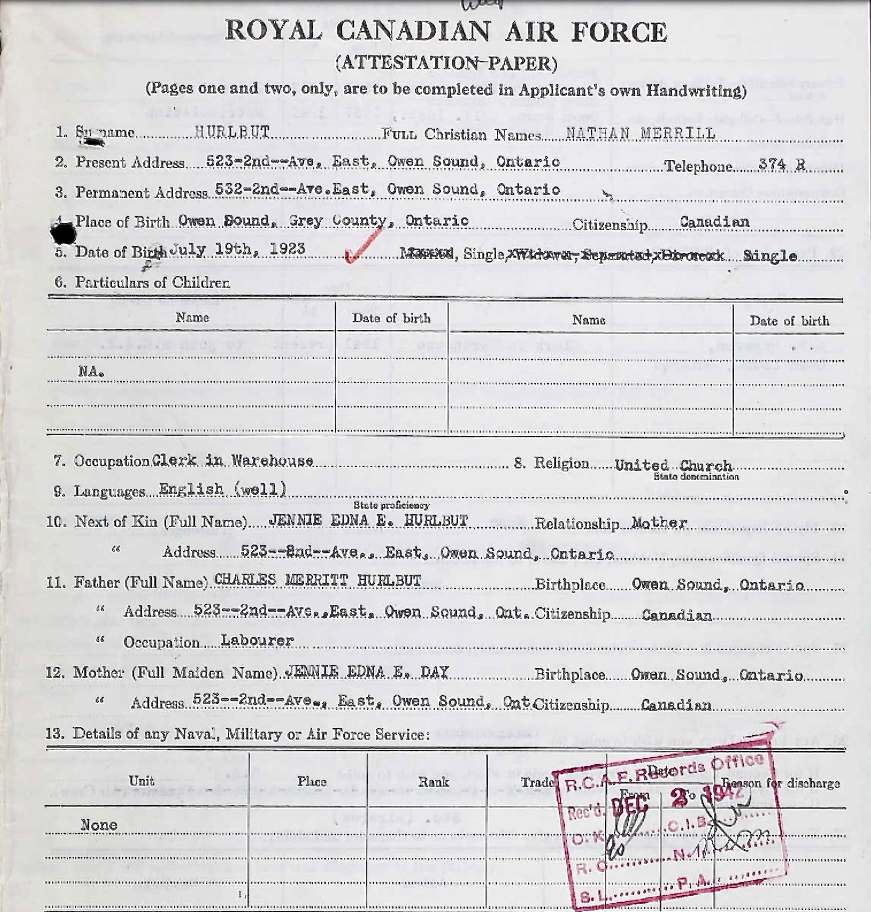 ROYAL CANADIAN AIR FORCE
(ATTESTATION PAPER)
(Pages one and two, only, are to be completed in Applicant's own Handwriting)
1. Surname HURLBUT FULL Christian Names NATHAN MERRILL
2. Present Address 523-2nd--Ave, East, Owen Sound, Ontario Telephone 374 R
3. Permanent Address 532-2nd--Ave.East, Owen Sound, Ontario
4. Place of Birth Owen Sound, Grey County, Ontario Citizenship Canadian
5. Date of Birth July 19th, 1923 Married, Single, Widower, Separated, Divorced Single
6. Particulars of Children
Name Date of birth Name Date of birth
NA.
7. Occupation Clerk in Warehouse 8. Religion United Church
State denomination
9. Languages English (well)
State proficiency
10. Next of Kin (Full Name) JENNIE EDNA E. HURLBUT Relationship Mother
" Address 523--2nd--Ave., East, Owen Sound, Ontario
11. Father (Full Name) CHARLES MERRITT HURLBUT Birthplace Owen Sound, Ontario
" Address 523--2nd--Ave.,East, Owen Sound, Ont. Citizenship Canadian
" Occupation Labourer
12. Mother (Full Maiden Name) JENNIE EDNA E. DAY Birthplace Owen Sound, Ontario
" Address 523--2nd--Ave., East, Owen Sound, Ont. Citizenship Canadian
13. Details of any Naval, Military or Air Force Service:
Unit Place Rank Trade Dates Reason for discharge
From To
None
R.C.A.F. Records Office
Rec'd. DEC 2 1942
O.K. C.I.B.
R.C. N.
S.L. P.A.